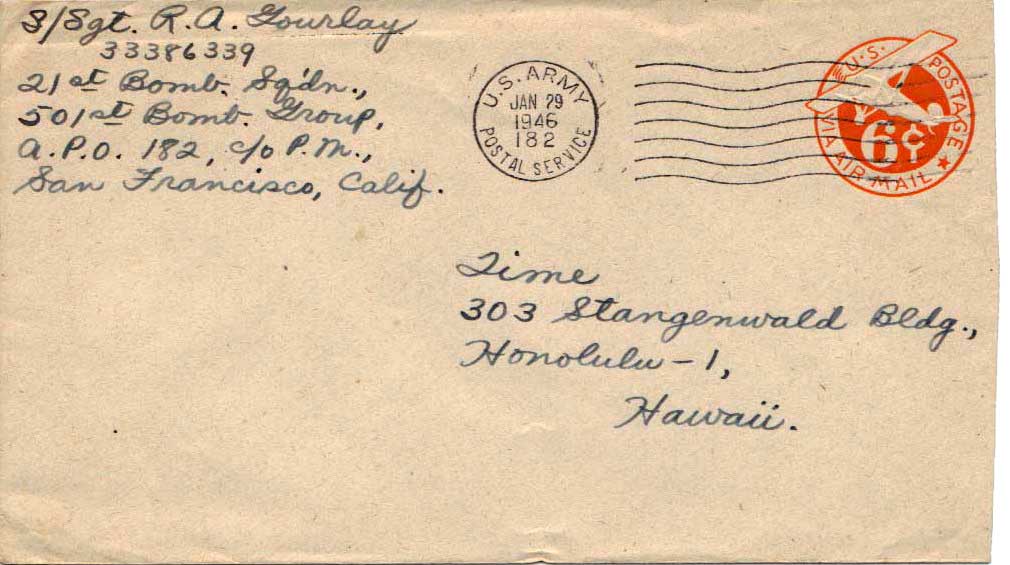 S/Sgt. R. A. Gourlay
33386339
21st Bomb. Sq'dn.,
501st Bomb. Group,
A.P.O. 182, c/o P.M.,
San Francisco, Calif.
U.S. ARMY
JAN 29
1946
182
POSTAL SERVICE
U.S. POSTAGE
6¢
VIA AIR MAIL
Time
303 Stangenwald Bldg.,
Honolulu-1,
Hawaii.